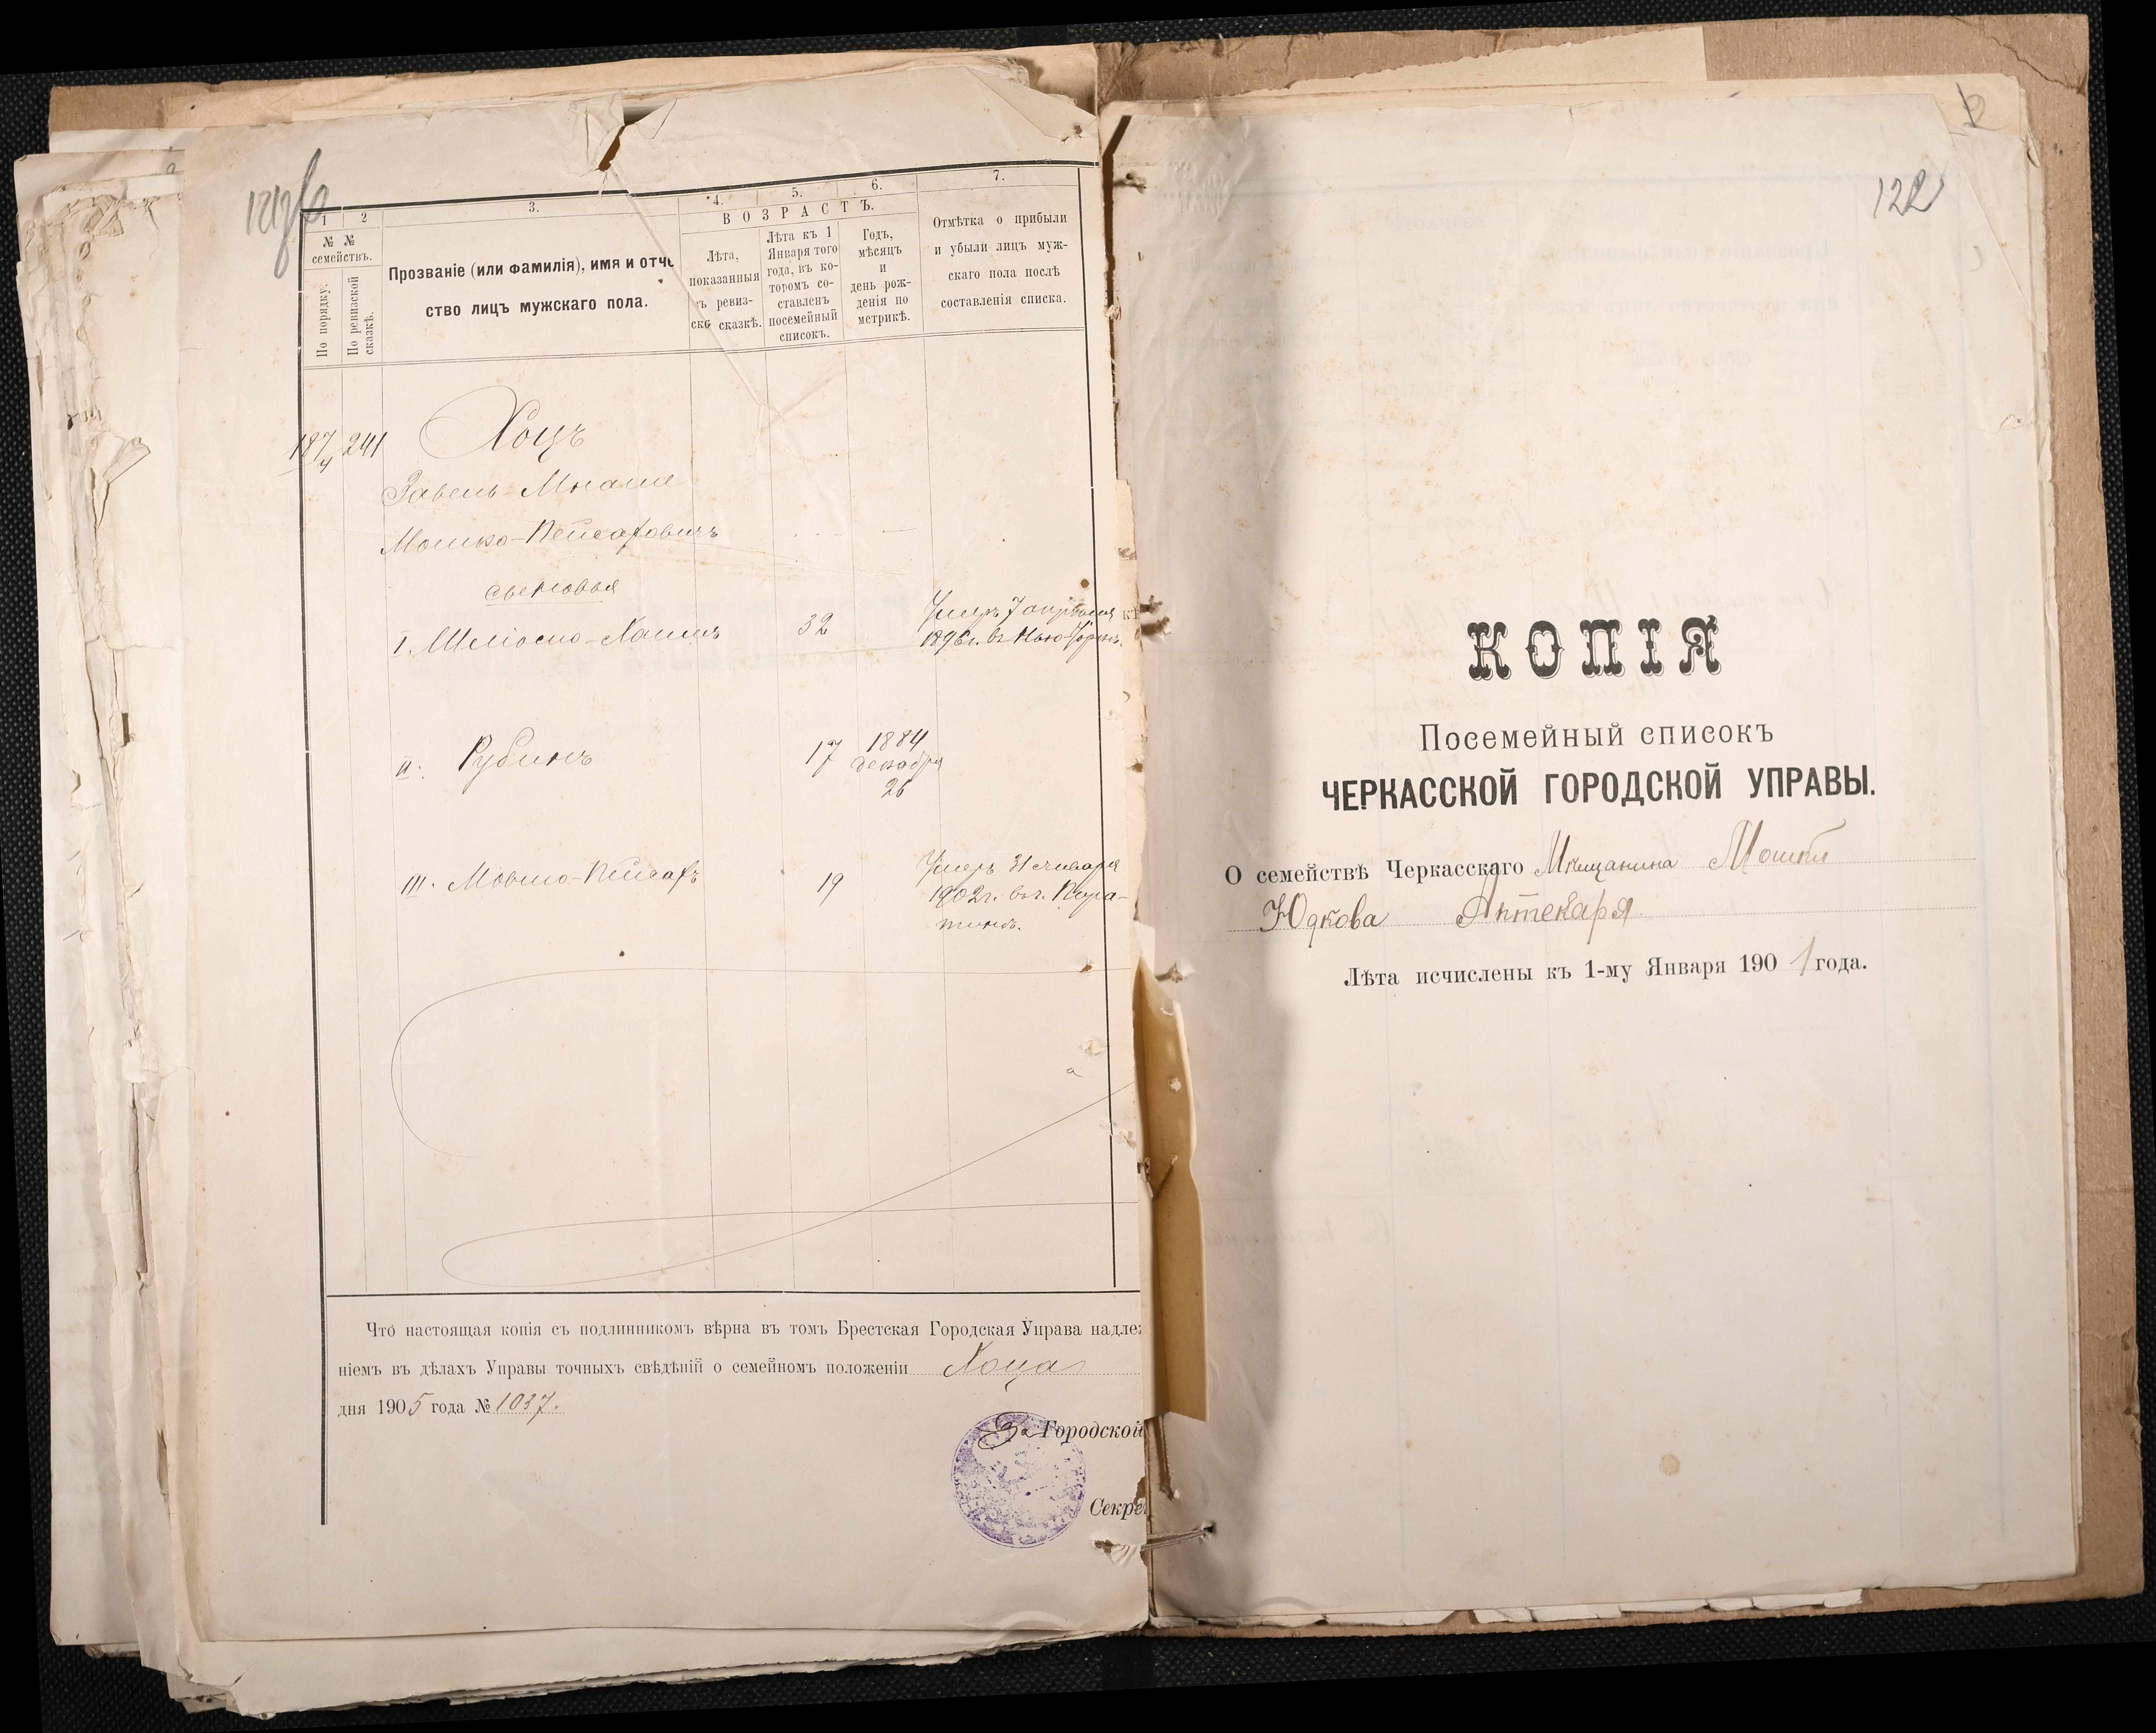 1.
2
3.
4.
5.
6.
7.
№ №
семействъ.
По порядку.
По ревизской
сказкѣ.
Прозваніе (или фамилія), имя и отче
ство лицъ мужскаго пола.
ВОЗРАСТЪ.
Лѣта,
показанныя
ъ ревиз-
ско сказкѣ.
Лѣта къ 1
Января того
года, въ ко-
торомъ со-
ставленъ
посемейный
списокъ.
Годъ,
мѣсяцъ
и
день рож-
денія по
метрикѣ.
Отмѣтка о прибыли
и убыли лицъ муж-
скаго пола послѣ
составленія списка.
187/4 241 Хоцъ
Завель-Мнаше
Мошко-Пейсаховичъ
сыновья
I. Шліомо-Хаимъ 32 Умеръ 7 апрѣля
1896 г. въ Нью-Іоркѣ.
II. Рубинъ 17 1884
декабря
26
III. Мовшо-Пейсахъ 19 Умеръ 31 января
1902 г. въ г.
Что настоящая копія съ подлинникомъ вѣрна въ томъ Брестская Городская Управа надлеж
ніемъ въ дѣлахъ Управы точныхъ свѣдѣній о семейномъ положеніи Хоца
дня 1905 года № 1037.
За Городской
Секре
122
КОПІЯ
Посемейный списокъ
ЧЕРКАССКОЙ ГОРОДСКОЙ УПРАВЫ.
О семействѣ Черкасскаго Мѣщанина Мошки
Юдкова Аптекаря
Лѣта исчислены къ 1-му Января 1901 года.